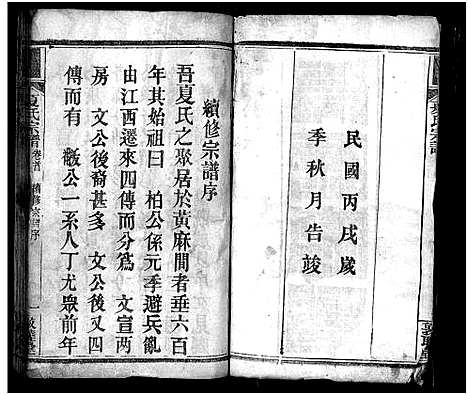 民國丙戌歲
季秋月告竣
續修宗譜序
吾夏氏之聚居於黃麻間者垂六百
年其始祖曰 柏公係元季避兵亂
由江西遷來四傳而分爲 文宣兩
房 文公後裔甚多 文公後又四
傳而有 公一系人丁尤衆前年
夏氏宗譜 卷首 續修宗譜序 一